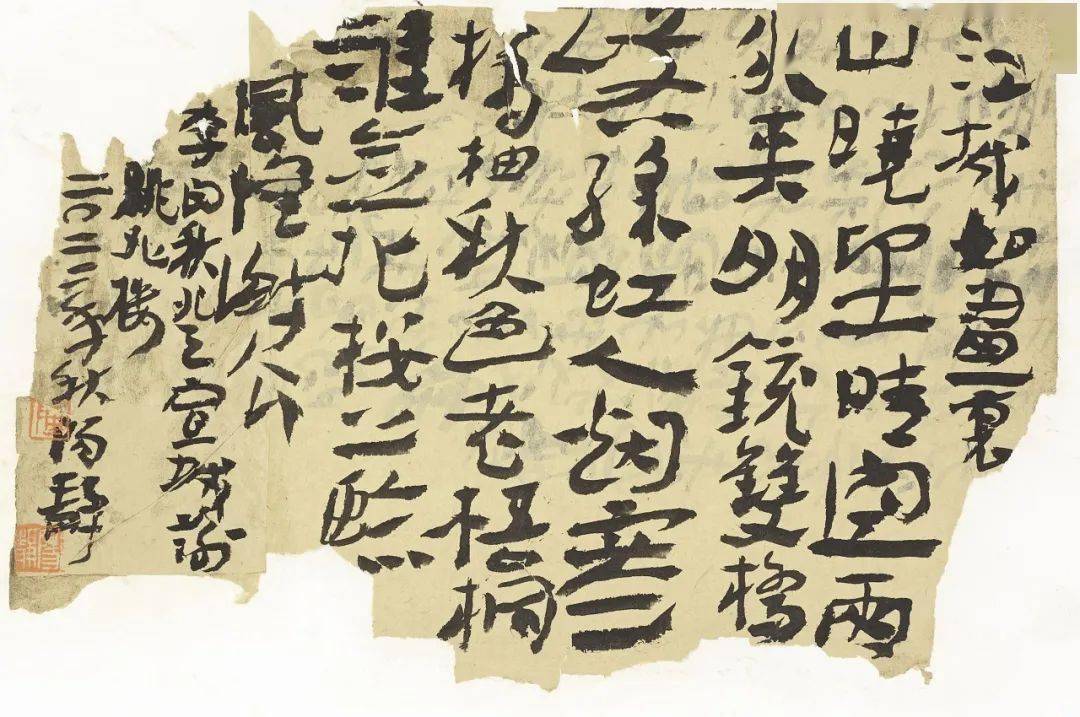 江城如畫裏
山曉望晴空兩
水夾明鏡雙橋
落綵虹人烟寒
橘柚秋色老梧桐
誰念北樓上臨
風懷謝公
李白秋登宣城謝
朓北樓
二〇二二年秋